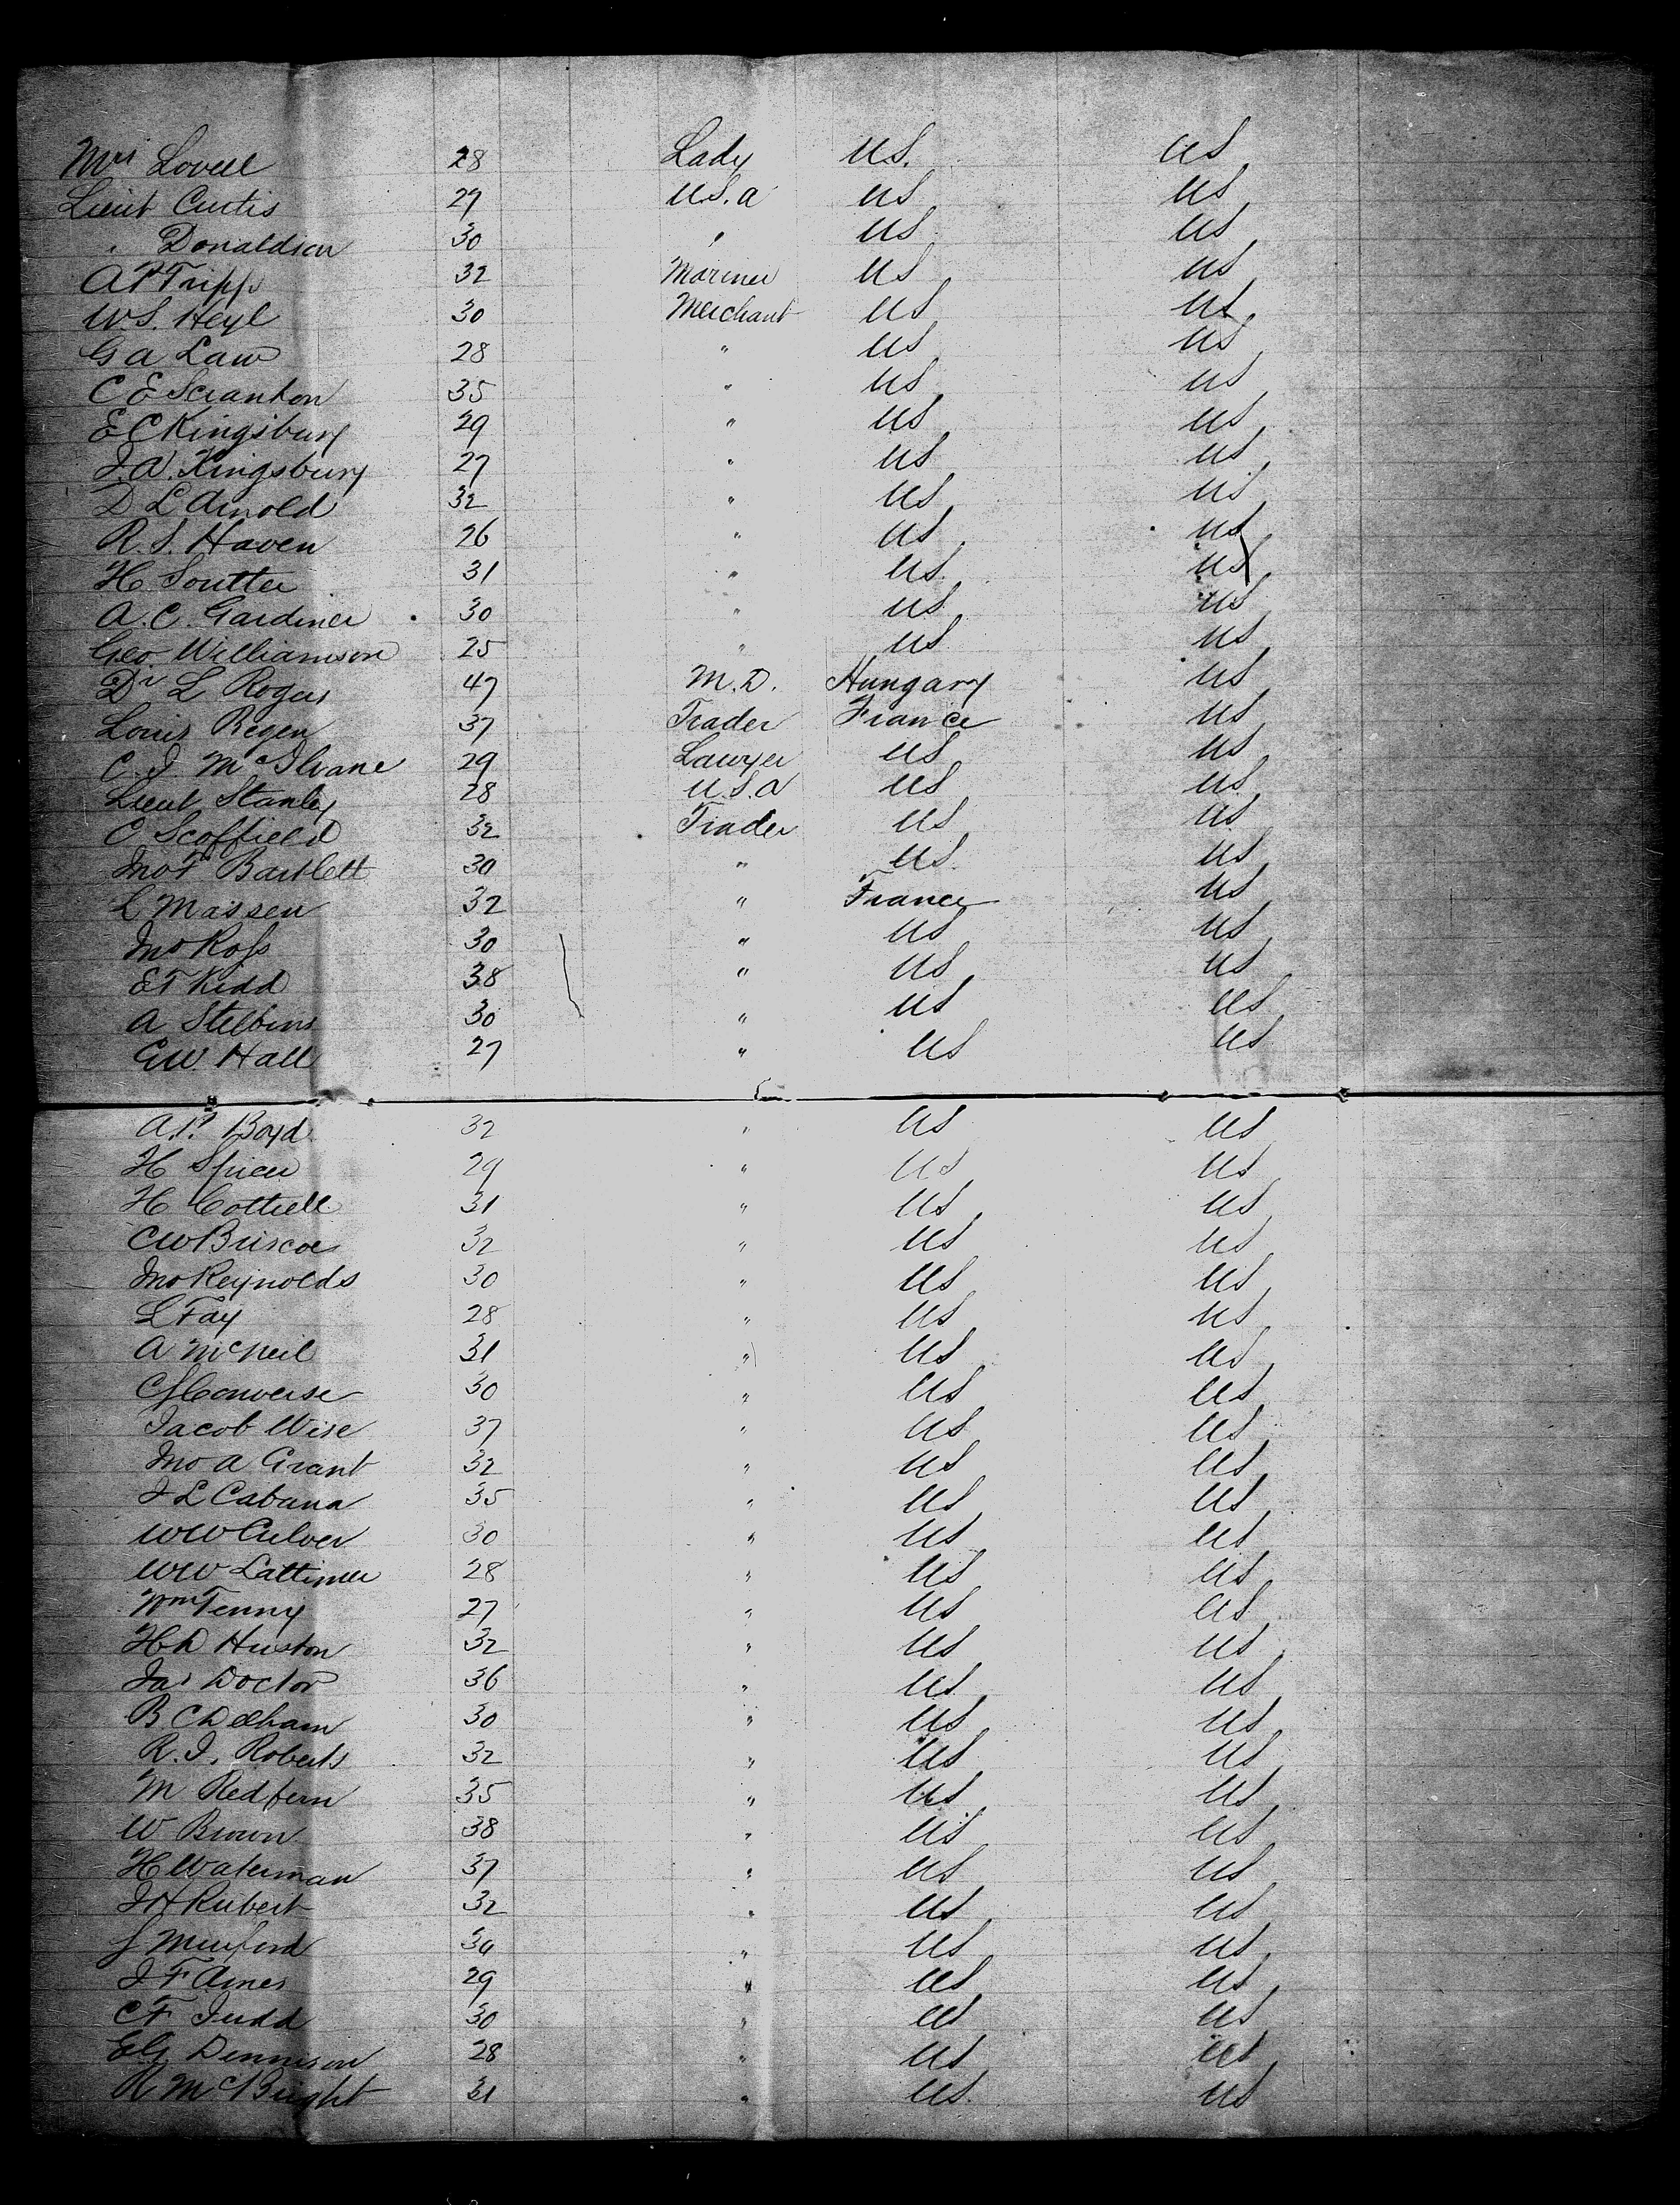 Mrs Lovell 28 Lady US. US
Lieut Curtis 29 U.S.A US US
" Donaldson 30 " US US
A P Tripp 32 Mariner US US
W.S. Heyl 30 Merchant US US
G A Law 28 " US US
C E Scranton 35 " US US
E C Kingsbury 29 " US US
J.A. Kingsbury 27 " US US
D L Arnold 32 " US US
R.S. Haven 26 " US US
H Soutter 31 " US US
A.C. Gardiner 30 " US US
Geo Williamson 25 " US US
Dr L Rogers 47 M.D. Hungary US
Louis Regen 37 Trader France US
C.J. McIlvane 29 Lawyer US US
Lieut Stanley 28 U.S.A US US
C Scoffield 32 Trader US US
Jno F Bartlett 30 " US US
L Massen 32 " France US
Jno Ross 30 " US US
E T Kidd 38 " US US
A Stebbins 30 " US US
G W. Hall 27 " US US
A.P. Boyd 32 " US US
H Spicer 29 " US US
H Cottrell 31 " US US
C W Briscoe 32 " US US
Jno Reynolds 30 " US US
L Fay 28 " US US
A McNeil 31 " US US
C J Converse 30 " US US
Jacob Wise 37 " US US
Jno A Grant 32 " US US
J L Cabana 35 " US US
W W Culver 30 " US US
W W Lattimer 28 " US US
Wm Tenny 27 " US US
H D Huston 32 " US US
Jas Doctor 36 " US US
B C Delham 30 " US US
R.J. Roberts 32 " US US
M Redfern 35 " US US
W Brown 38 " US US
H Waterman 37 " US US
J H Rubert 32 " US US
J Munford 34 " US US
J F Ames 29 " US US
C F Judd 30 " US US
E G Dennison 28 " US US
R McBright 31 " US US